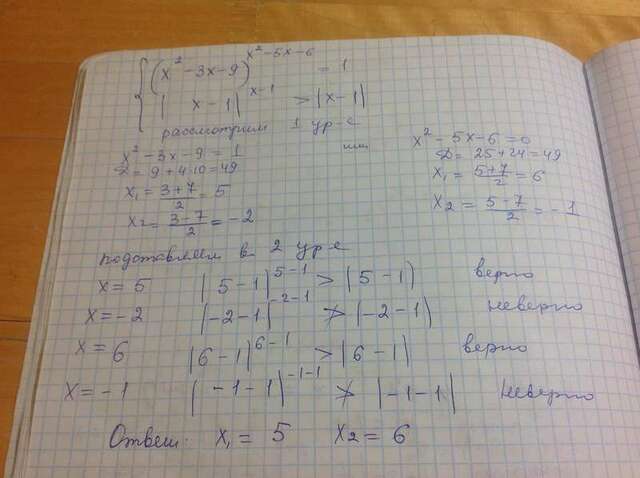 (x² - 3x - 9)^(x² - 5x - 6) = 1
|x - 1|^(x - 1) > |x - 1|
рассмотрим 1 ур-е
x² - 3x - 9 = 1 или x² - 5x - 6 = 0
D = 9 + 4·10 = 49 D = 25 + 24 = 49
x₁ = (3 + 7)/2 = 5 x₁ = (5 + 7)/2 = 6
x₂ = (3 - 7)/2 = -2 x₂ = (5 - 7)/2 = -1
подставляем в 2 ур-е
x = 5 |5 - 1|^(5 - 1) > |5 - 1| верно
x = -2 |-2 - 1|^(-2 - 1) ≯ |-2 - 1| неверно
x = 6 |6 - 1|^(6 - 1) > |6 - 1| верно
x = -1 |-1 - 1|^(-1 - 1) ≯ |-1 - 1| неверно
Ответ: x₁ = 5 x₂ = 6